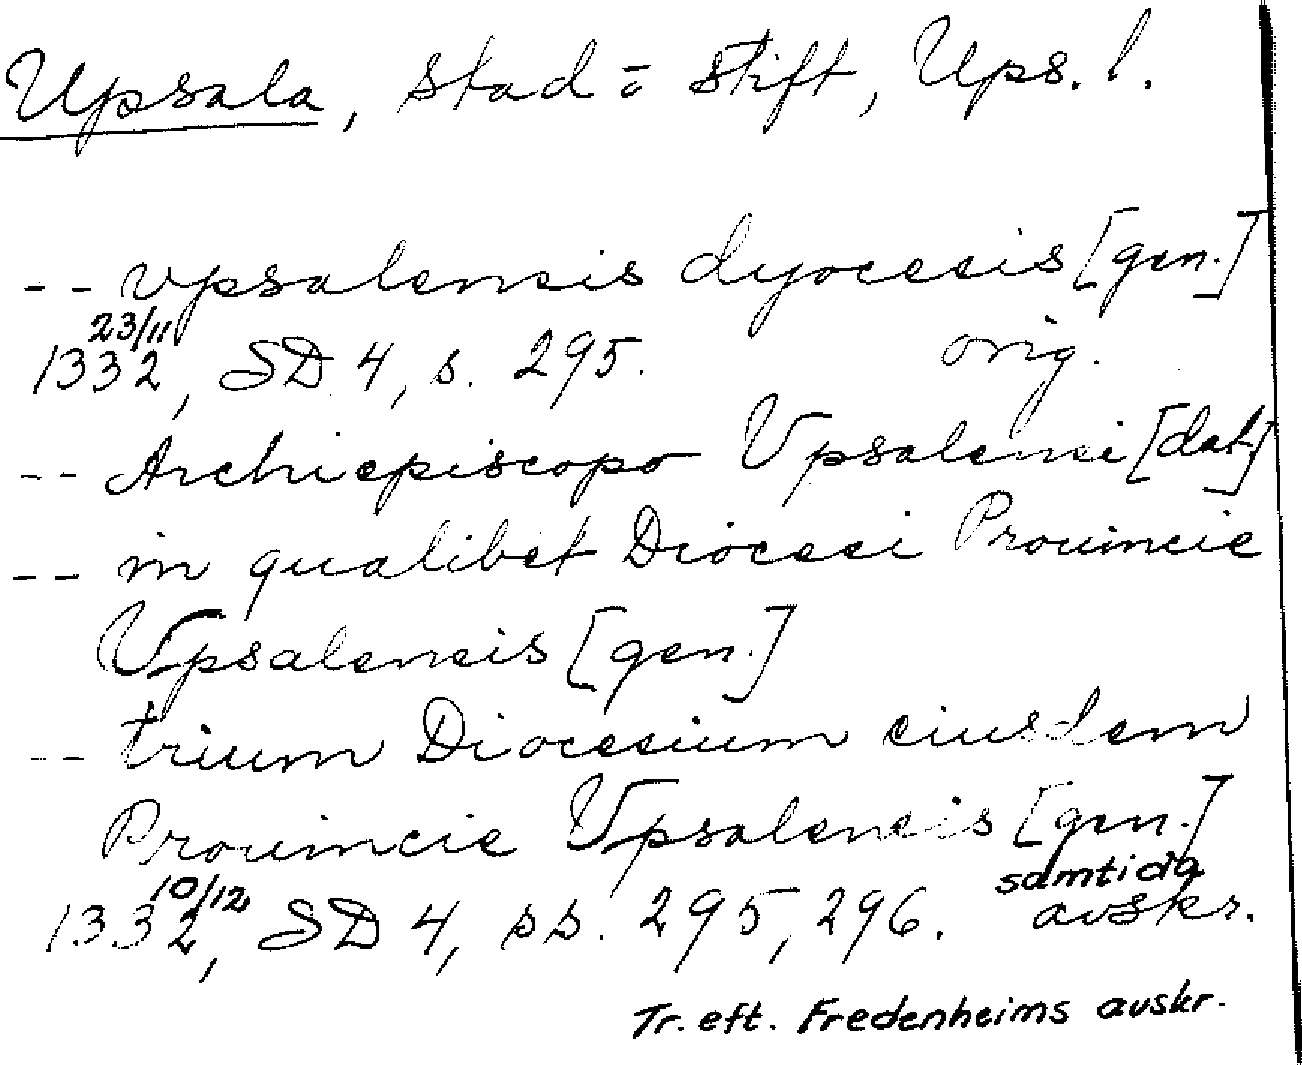 Upsala, stad o. stift, Ups. l.
-- vpsalensis dyocesis [gen.]
23/11
1332, SD 4, s. 295. orig.
-- Archiepiscopo Vpsalensi [dat.]
-- in qualibet Diocesi Prouincie
Vpsalensis [gen.]
-- trium Diocesium eiusdem
Prouincie Vpsalensis [gen.]
10/12 samtida
1332, SD 4, ss. 295, 296. avskr.
Tr. eft. Fredenheims avskr.